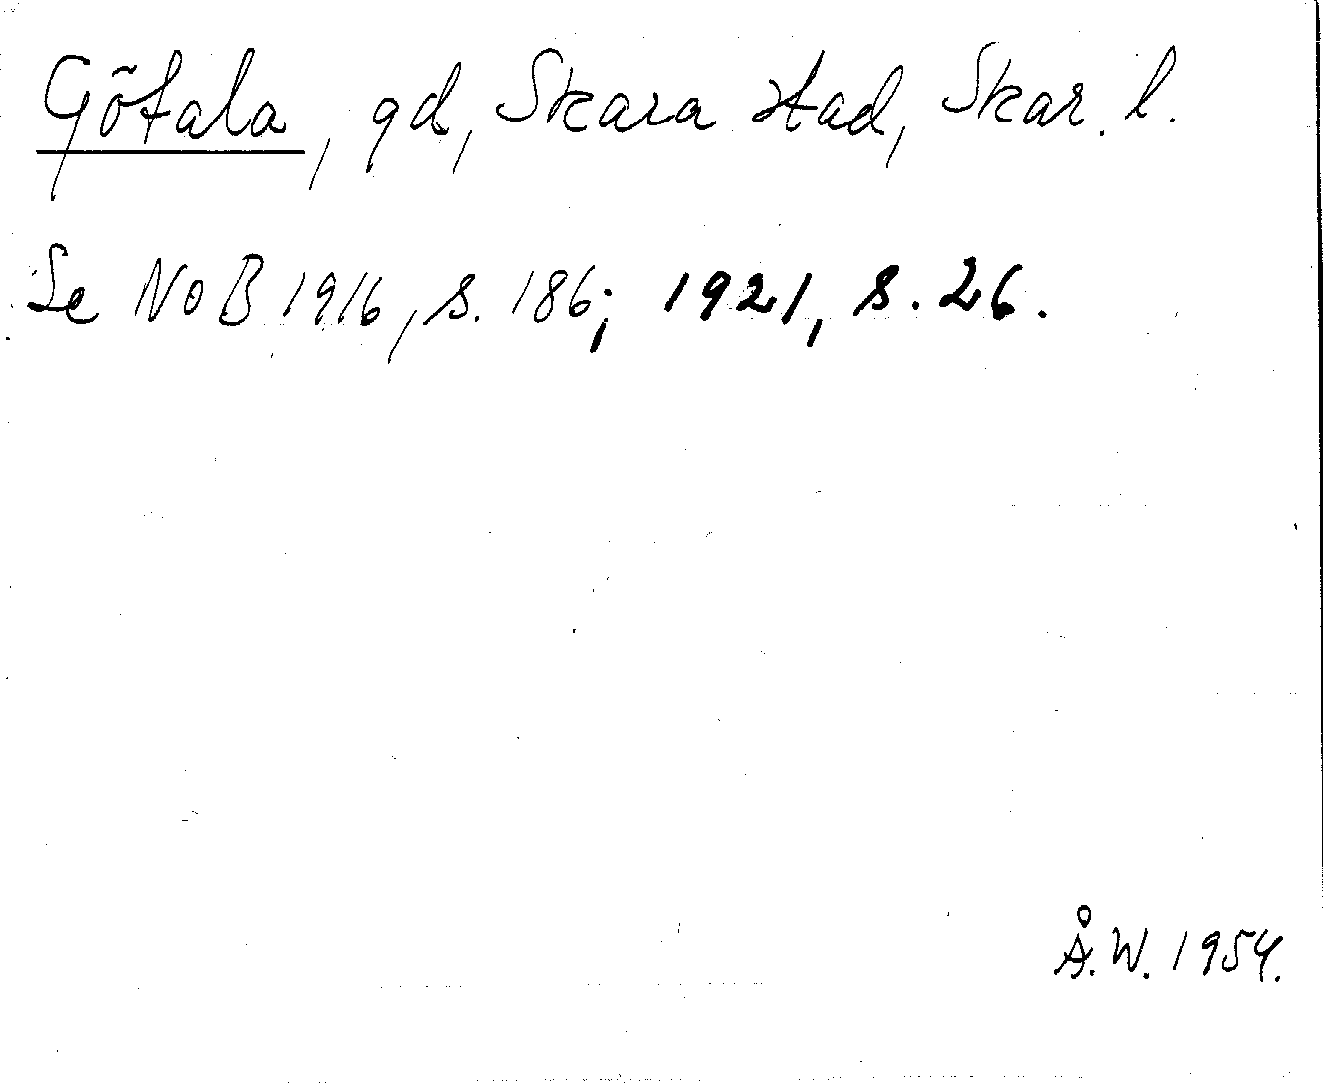 Götala, gd, Skara stad, Skar. l.
Se NoB 1916, s. 186; 1921, s. 26.
Å.W. 1954.